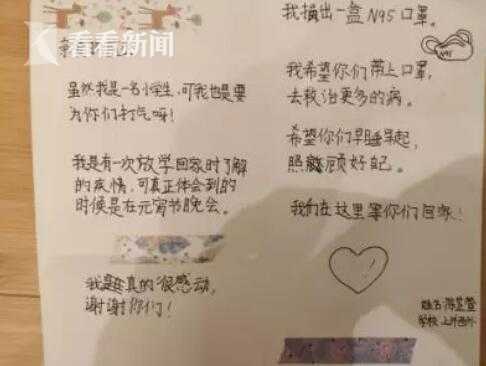 看看新闻
虽然我是一名小学生,可我也是要
为你们打气呀!
我是有一次放学回家时了解
的疫情,可真正体会到的
时候是在元宵节晚会。
我是真的很感动,
谢谢你们!
我捐出一盒N95口罩。
N95
我希望你们带上口罩,
去救治更多的病。
希望你们早睡早起,
照顾好自己。
我们在这里等你们回家!
姓名:
学校:上外西外